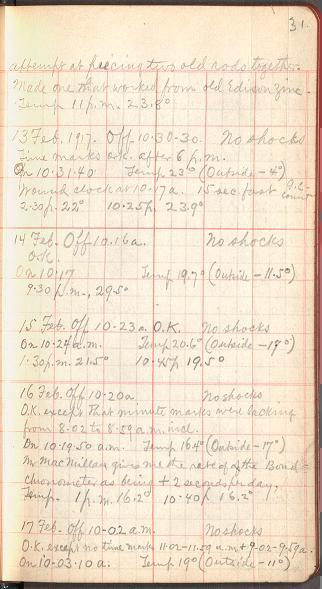 31.
attempt at piecing two old rods together.
Made one that worked from old Edison zinc.
Temp 11 p.m. 23.8°
13 Feb. 1917. Off 10-30-30. No shocks
Time marks o.k. after 6 p.m.
On 10-31-40 Temp 23° (Outside -4°)
Wound clock at 10-17a. 15 sec. fast
2.30p. 22° 10.25p. 23.9°
14 Feb. Off 10-16a. No shocks
O.K.
On 10-17 Temp 19.7° (Outside -11.5°)
9-30 p.m., 29.5°
15 Feb. Off 10-23a. O.K. No shocks
On 10-24a.m. Temp 20.6° (Outside -19°)
1.30p.m. 21.5° 10.45p 19.5°
16 Feb. Off 10-20a. No shocks
O.K. except that minute marks were lacking
from 8-02 to 8-59 a.m. incl.
On 10-19-50 a.m. Temp 16.4° (Outside -17°)
Mr MacMillan gives me the rate of the Bond
chronometer as being +2 seconds per day.
Temp. 1 p.m. 16.2° 10-40p. 16.2°
17 Feb. Off 10-02 a.m. No shocks
O.K. except no time marks 11-02-11.59 a.m + 9-02-9.59a.
On 10-03-10 a. Temp 19° (Outside -11°)